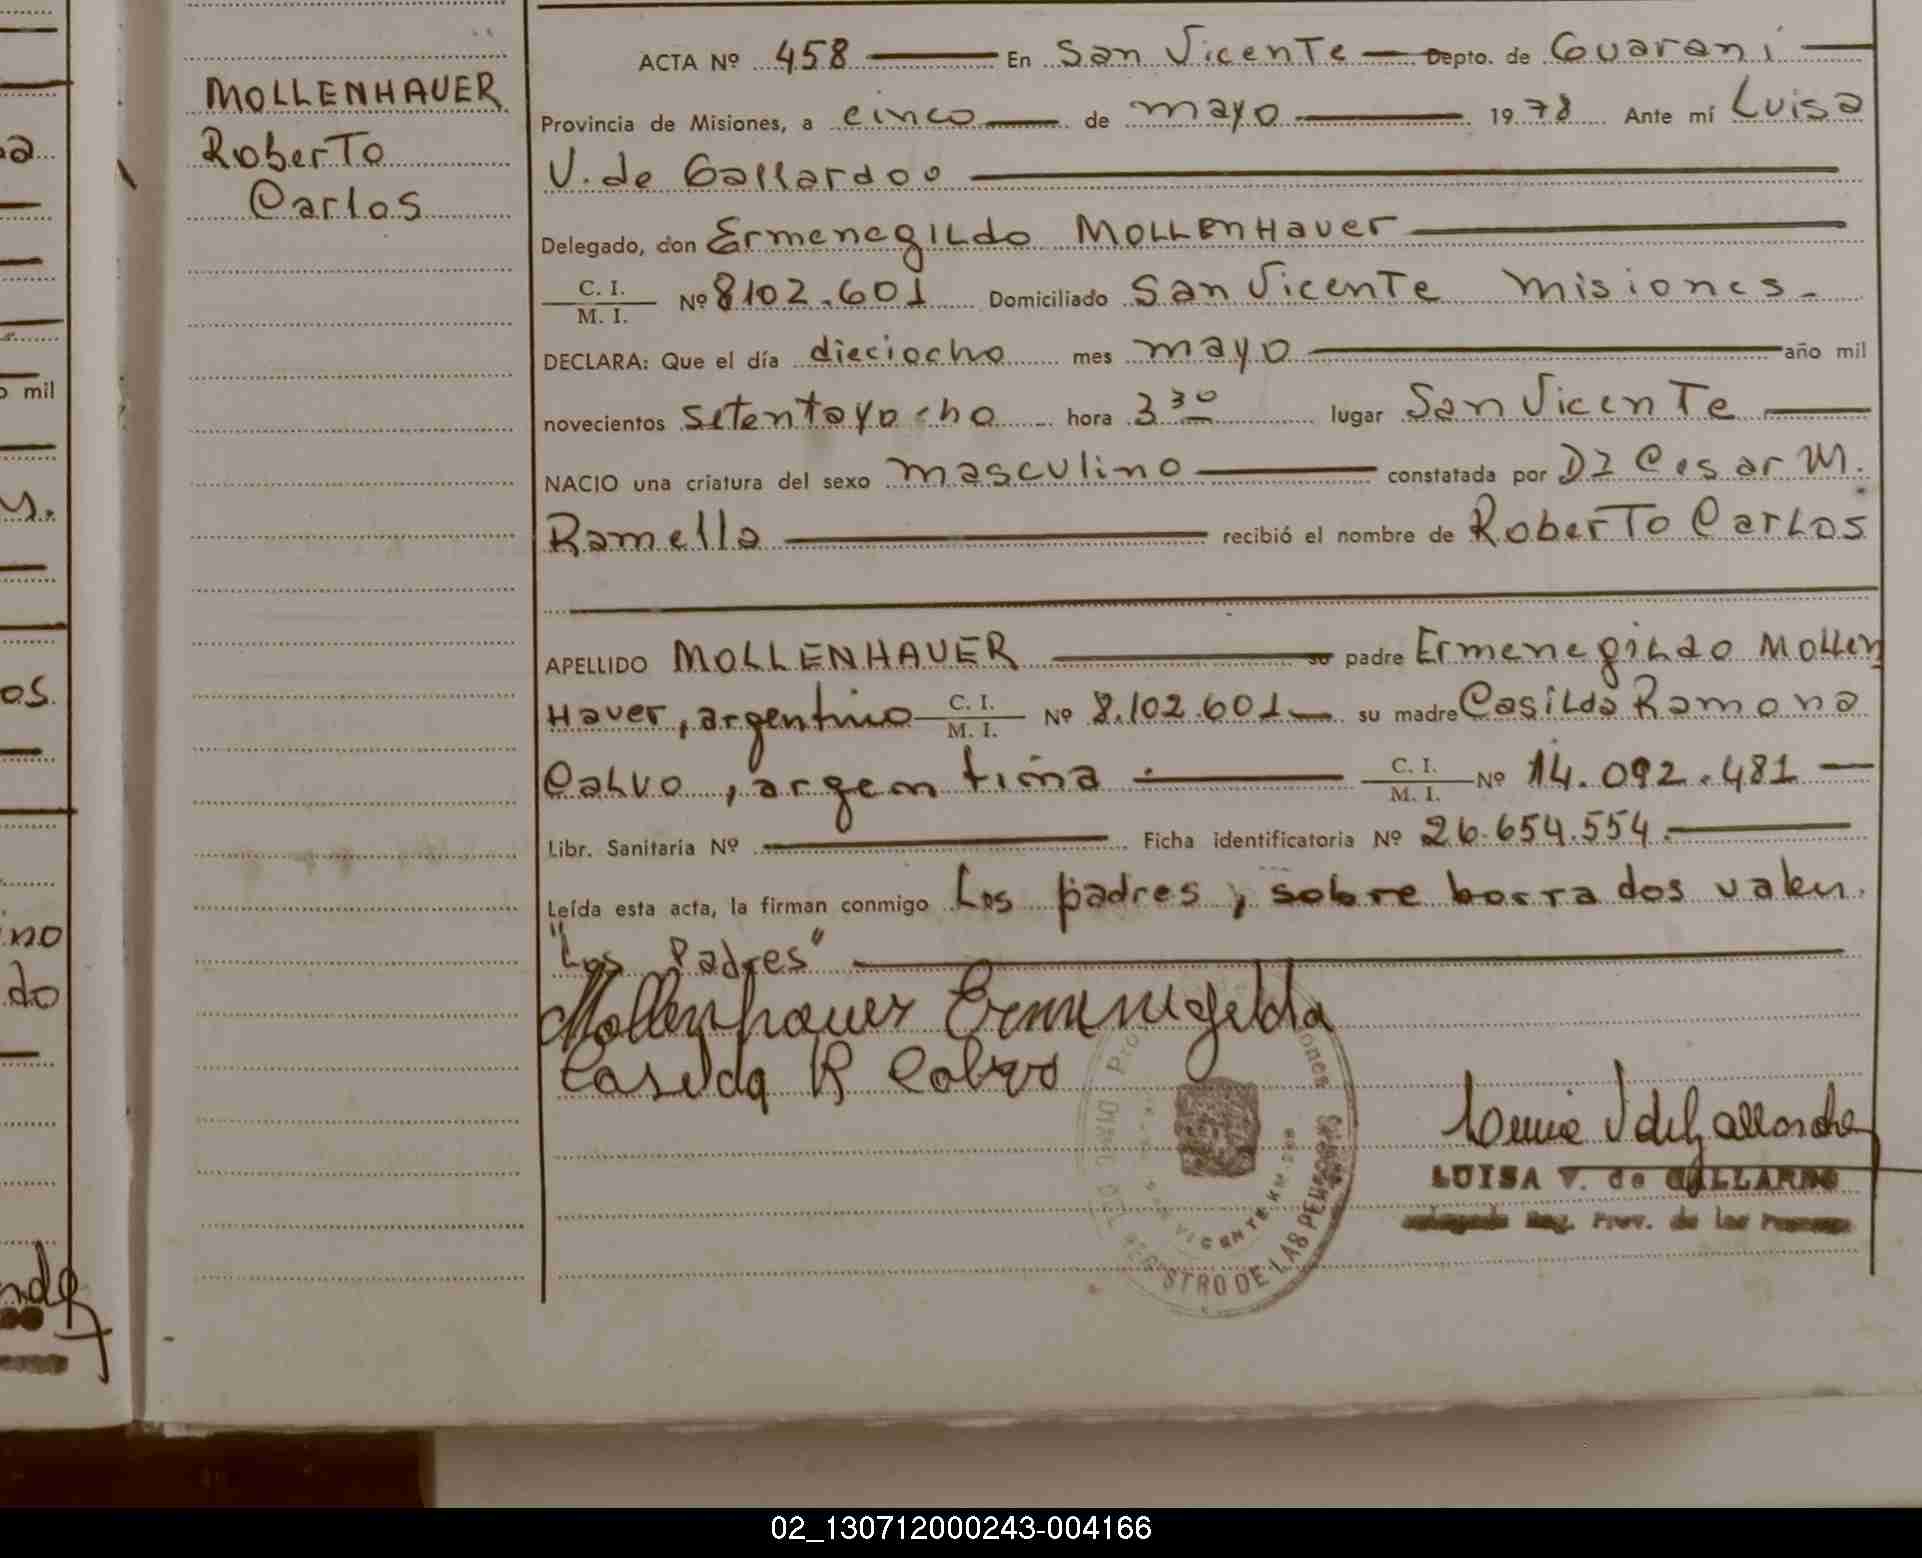 MOLLENHAUER
Roberto
Carlos
ACTA Nº 458 En San Vicente Depto. de Guarani
Provincia de Misiones, a cinco de mayo 1978 Ante mí Luisa
V. de Gallardoo
Delegado, don Ermenegildo MOLLENHAUER
C. I.
M. I. Nº 8102.601 Domiciliado San Vicente Misiones.
DECLARA: Que el día dieciocho mes mayo año mil
novecientos setentayocho hora 3 30 lugar San Vicente
NACIO una criatura del sexo masculino constatada por Cesar M.
Ramella recibió el nombre de Roberto Carlos
APELLIDO MOLLENHAUER su padre Ermenegildo Mollen
Hauer, argentino C. I. M. I. Nº 8.102.601 su madre Casilda Ramona
Calvo, argentina C. I. M. I. Nº 14.092.481
Libr. Sanitaria Nº Ficha identificatoria Nº 26.654.554.
Leída esta acta, la firman conmigo Los padres, sobre borrados valen.
"Los Padres"
Mollenhauer Ermenegildo
Casilda R Calvo
LUISA V. de GALLARDO
Reg. Prov. de las Personas
REGISTRO DE LAS PERSONAS
VICENTE
o mil
os.
ino
do
02_130712000243-004166